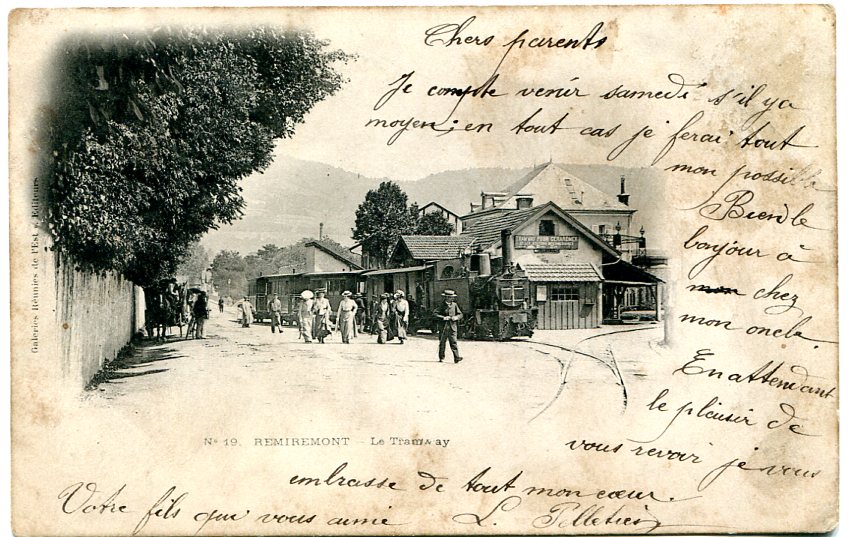 Chers parents
Je compte venir samedi s'il y a
moyen; en tout cas je ferai tout
mon possible
Bien le
bonjour à
chez
mon oncle.
En attendant
le plaisir de
vous revoir je vous
embrasse de tout mon cœur.
Votre fils qui vous aime L. Pelletier
TRAMWAY POUR GERARDMER
Galeries Réunies de l'Est, Editeurs
N° 19. REMIREMONT - Le Tramway